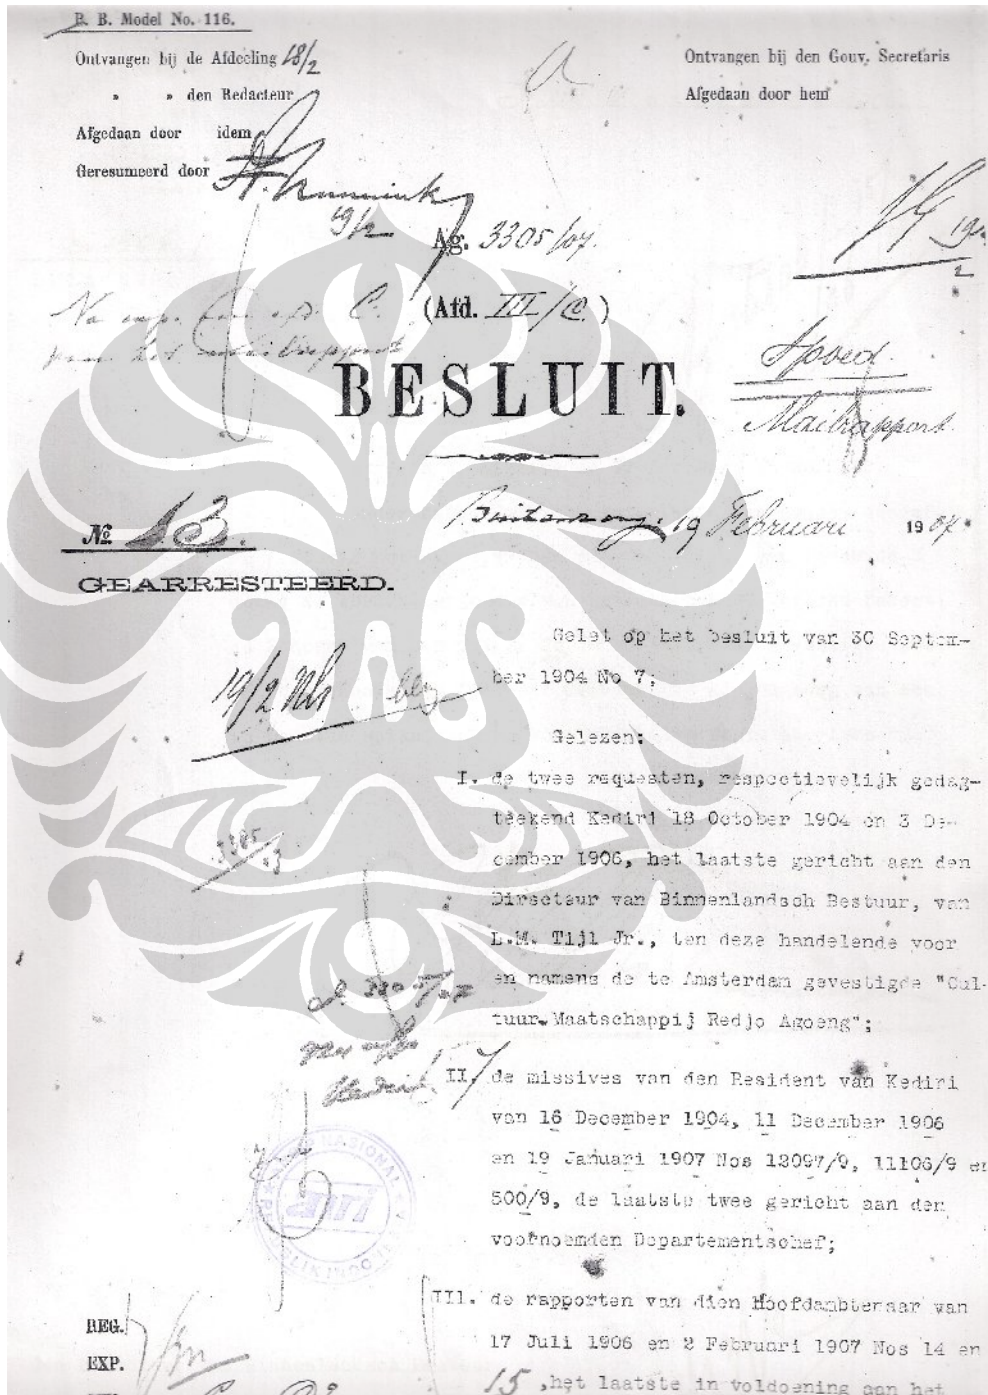 B. B. Model No. 116.
Ontvangen bij de Afdeeling 18/2
" " den Redacteur
Afgedaan door idem
Geresumeerd door
19/2
Ontvangen bij den Gouv. Secretaris
Afgedaan door hem
Ag. 3305/07.
(Afd. III/C.)
Spoed.
Mailrapport.
BESLUIT.
No. 13.
Buitenzorg, 19 Februari 1907.
GEARRESTEERD.
19/2
Gelet op het besluit van 30 Septem-
ber 1904 No 7;
Gelezen:
I. de twee requesten, respectievelijk gedag-
teekend Kediri 18 October 1904 en 3 De-
cember 1906, het laatste gericht aan den
Directeur van Binnenlandsch Bestuur, van
L.M. Tijl Jr., ten deze handelende voor
en namens de te Amsterdam gevestigde "Cul-
tuur-Maatschappij Redjo Agoeng";
II. de missives van den Resident van Kediri
van 16 December 1904, 11 December 1906
en 19 Januari 1907 Nos 12097/9, 11106/9 en
500/9, de laatste twee gericht aan den
voornoemden Departementschef;
III. de rapporten van dien Hoofdambtenaar van
17 Juli 1906 en 2 Februari 1907 Nos 14 en
15, het laatste in voldoening aan het
REG.
EXP.